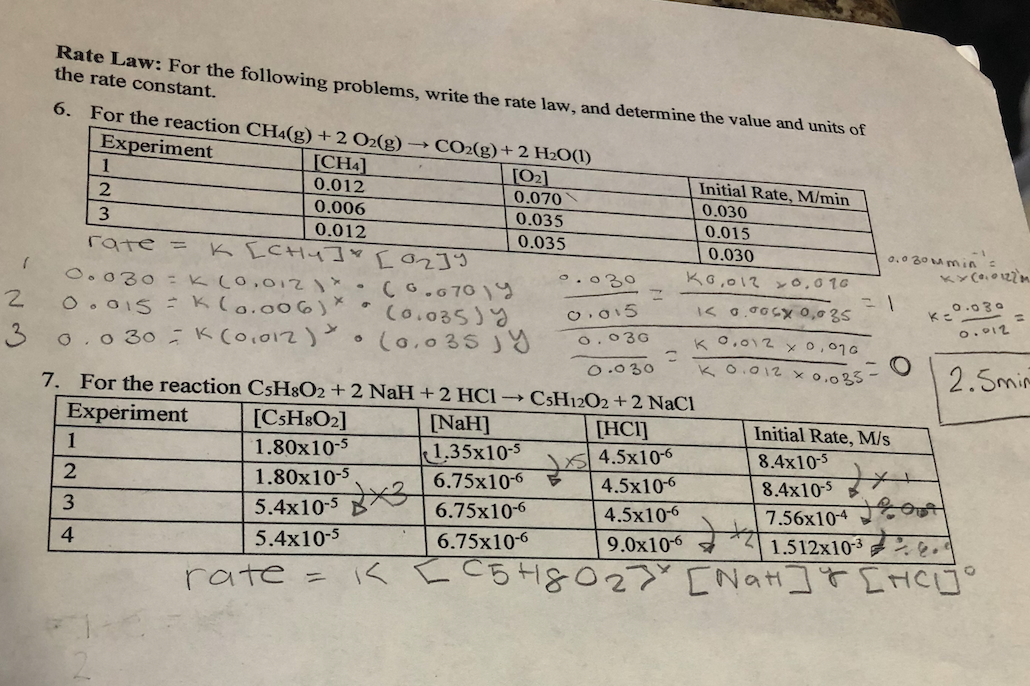 Rate Law: For the following problems, write the rate law, and determine the value and units of
the rate constant.
6. For the reaction CH4(g) + 2 O2(g) → CO2(g) + 2 H2O(l)
Experiment [CH4] [O2] Initial Rate, M/min
1 0.012 0.070 0.030
2 0.006 0.035 0.015
3 0.012 0.035 0.030
rate = K [CH4]x [O2]y
1 0.030 = K (0.012)x • (0.070)y
2 0.015 = K (0.006)x • (0.035)y
3 0.030 = K (0.012)x • (0.035)y
0.030 / 0.015 = K 0.012 x 0.070 / K 0.006 x 0.035 = 1
0.030 / 0.030 = K 0.012 x 0.070 / K 0.012 x 0.035 = 0
0.030 M min-1 =
K x (0.012)M
K = 0.030 / 0.012 =
2.5 min
7. For the reaction C5H8O2 + 2 NaH + 2 HCl → C5H12O2 + 2 NaCl
Experiment [C5H8O2] [NaH] [HCl] Initial Rate, M/s
1 1.80x10-5 1.35x10-5 4.5x10-6 8.4x10-5
2 1.80x10-5 6.75x10-6 4.5x10-6 8.4x10-5
3 5.4x10-5 6.75x10-6 4.5x10-6 7.56x10-4
4 5.4x10-5 6.75x10-6 9.0x10-6 1.512x10-3
x3
x5
x2
x1
rate = K [C5H8O2]x [NaH]y [HCl]o
1
2